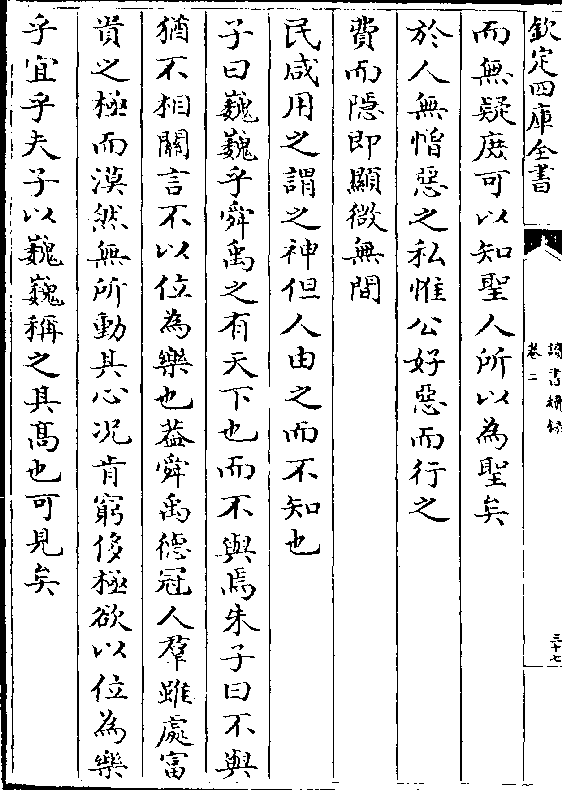 欽定四庫全書
讀書續録
卷二
三十七
而無疑庶可以知聖人所以為聖矣
於人無憎惡之私惟公好惡而行之
費而隱即顯微無間
民咸用之謂之神但人由之而不知也
子曰巍巍乎舜禹之有天下也而不與焉朱子曰不與
猶不相關言不以位為樂也葢舜禹德冠人羣雖處富
貴之極而漠然無所動其心况肯窮侈極欲以位為樂
乎宜乎夫子以巍巍稱之其髙也可見矣